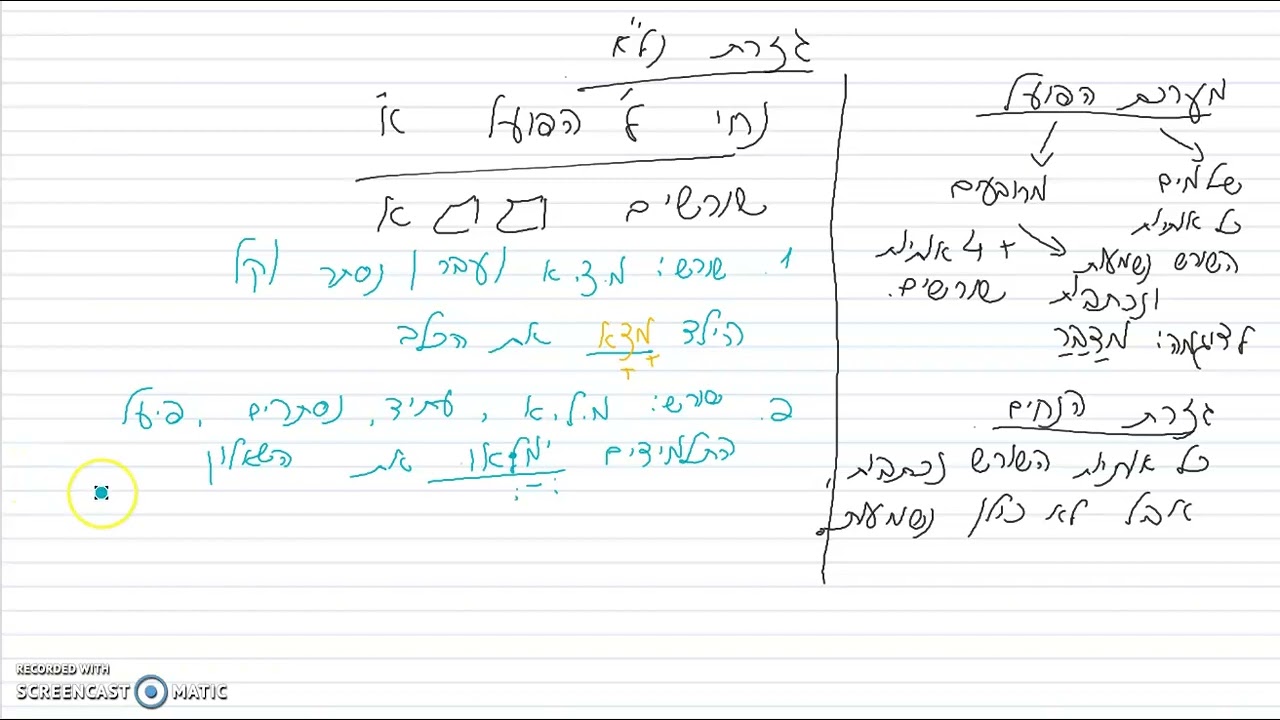 מערכת הפועל
שלמים
כל אותיות
השורש נשמעות
ונכתבות
מרובעים
+ 4 אותיות
שורשים.
לדוגמה: מדבר
גזרת הנחים
כל אותיות השורש נכתבות,
אבל לא כולן נשמעות.
גזרת נל"א
נחי ל' הפועל א'
שורשים א
1. שורש: מ.צ.א / עבר / נסתר / קל
הילד מצא את הכלב
2. שורש: מ.ל.א, עתיד, נסתרים, פיעל
התלמידים ימלאו את השאלון
RECORDED WITH
SCREENCAST MATIC